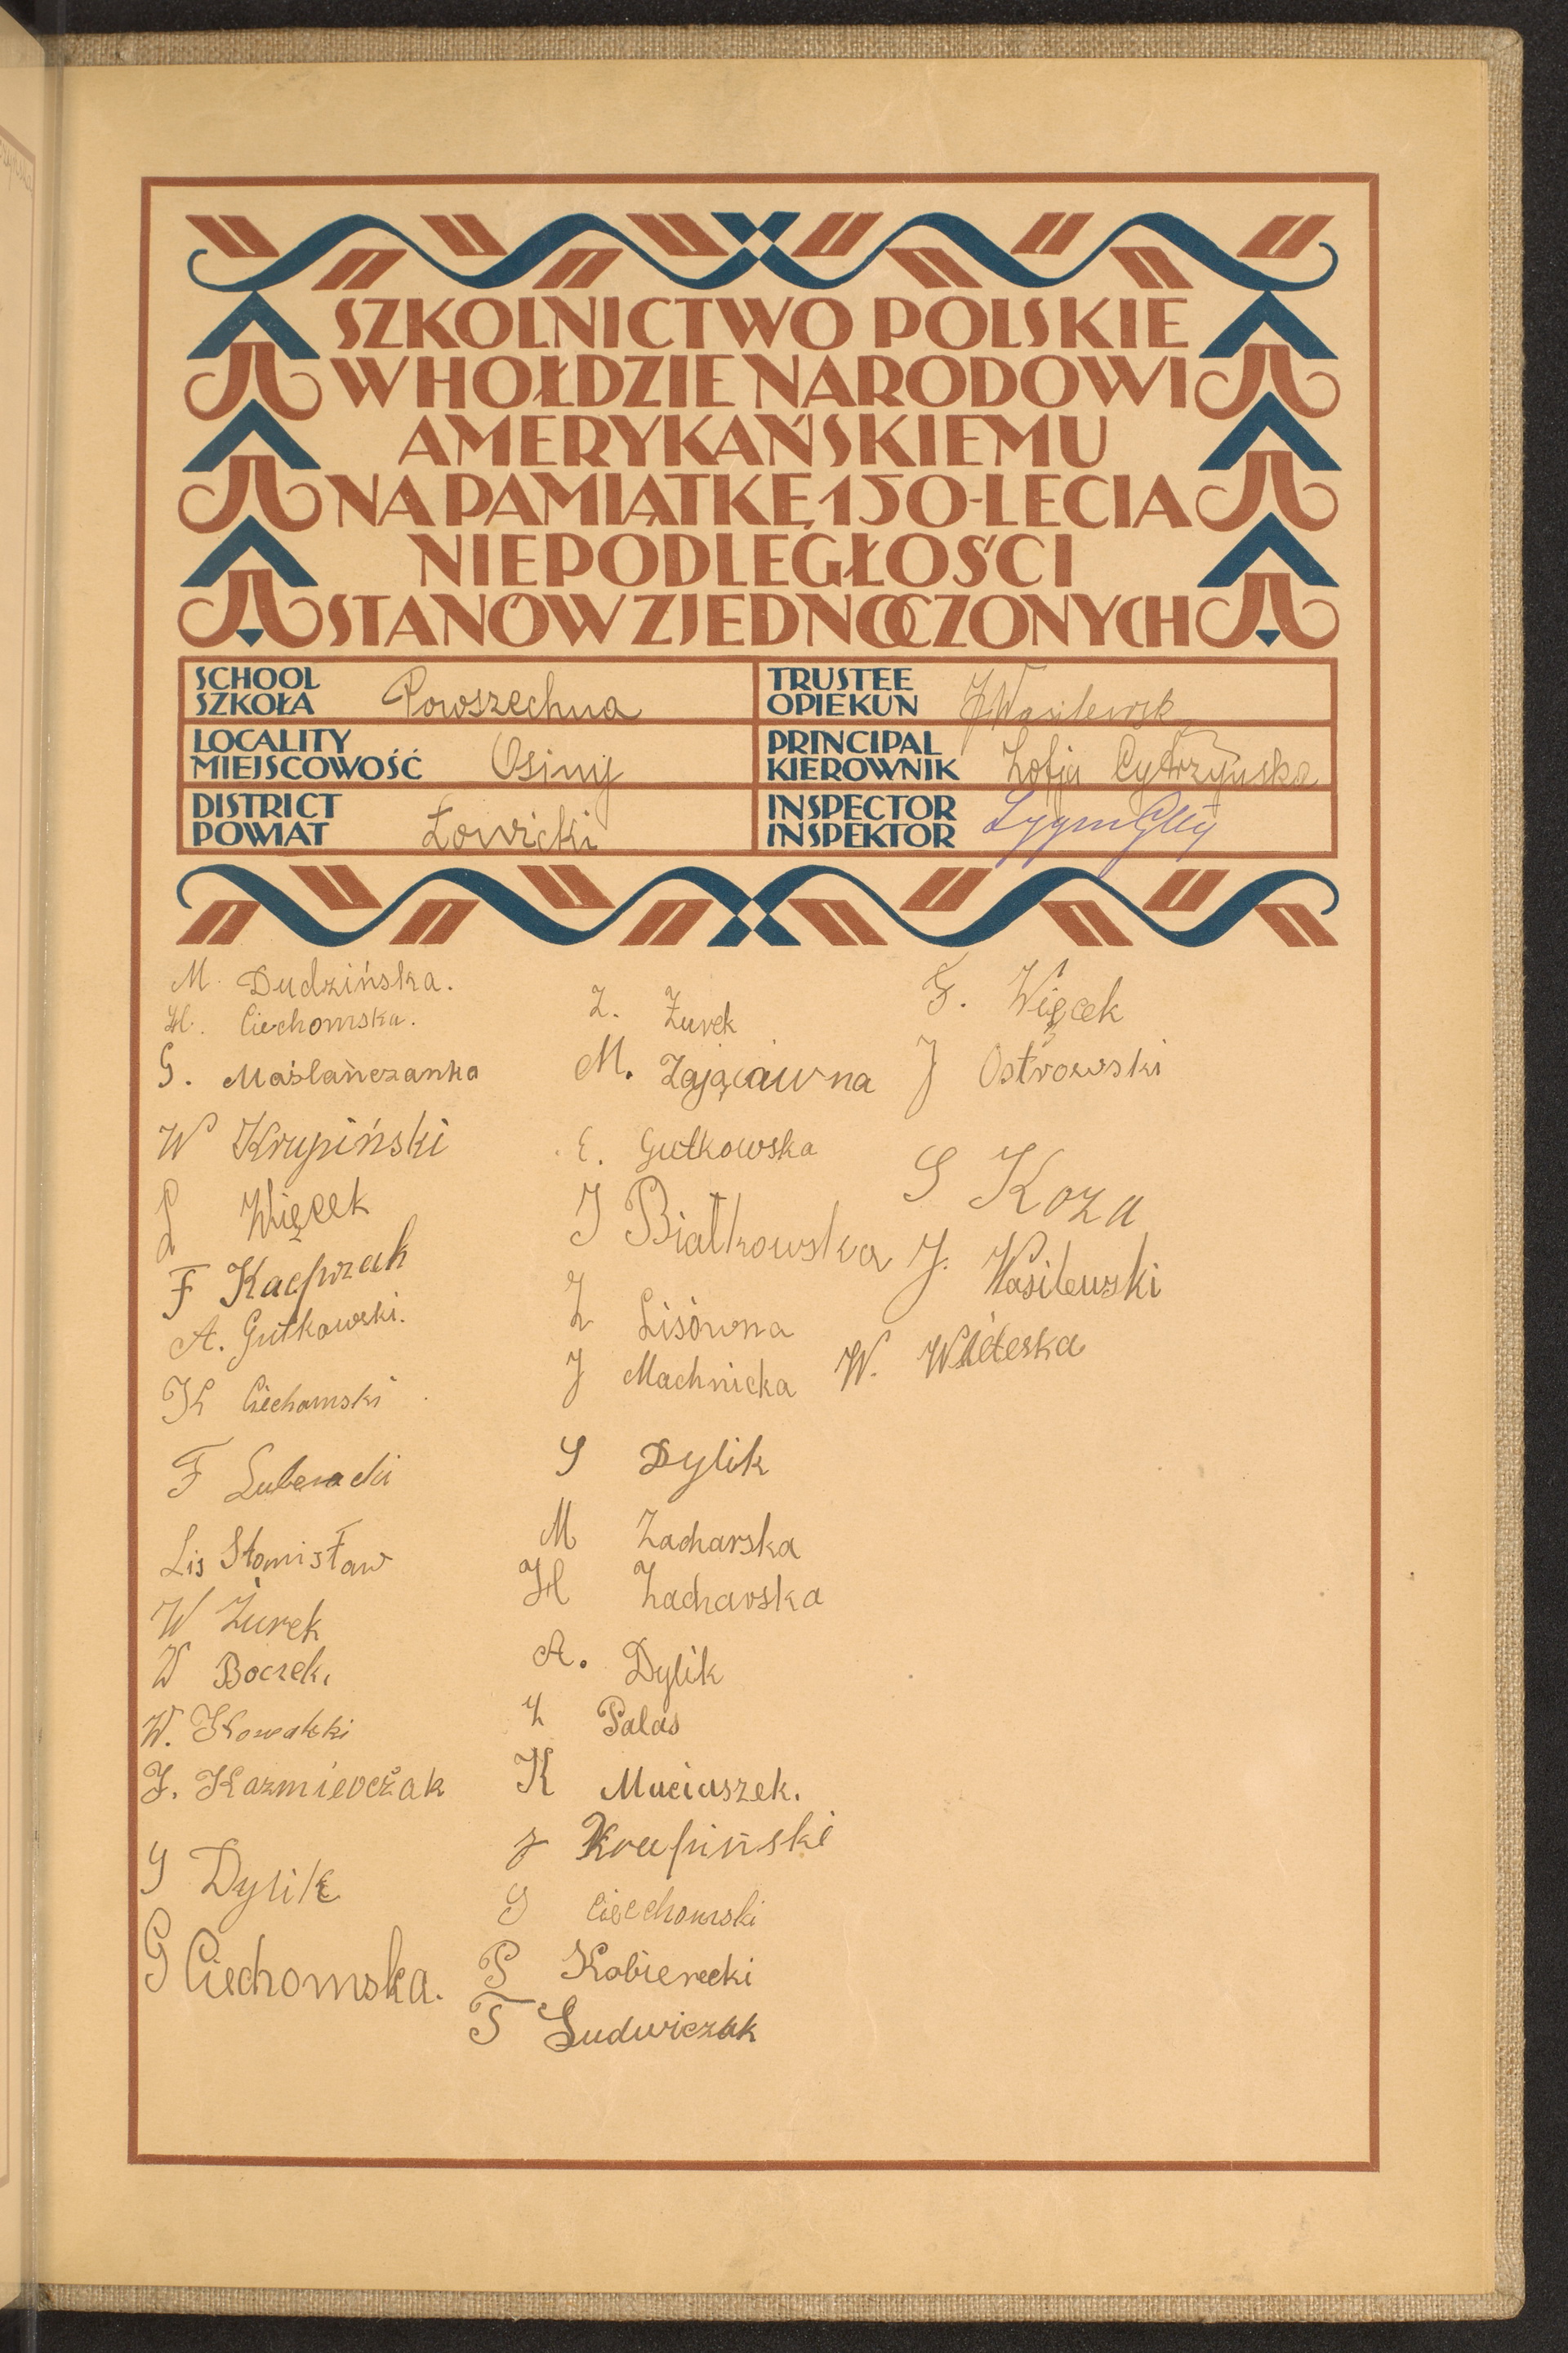 SZKOLNICTWO POLSKIE
W HOŁDZIE NARODOWI
AMERYKAŃSKIEMU
NA PAMIĄTKĘ 150-LECIA
NIEPODLEGŁOŚCI
STANÓW ZJEDNOCZONYCH
SCHOOL
SZKOŁA Powszechna
TRUSTEE
OPIEKUN J Wasilewski
LOCALITY
MIEJSCOWOŚĆ Osiny
PRINCIPAL
KIEROWNIK Zofja Cytrzyńska
DISTRICT
POWIAT Łowicki
INSPECTOR
INSPEKTOR
M. Dudzińska.
H. Ciechomska.
G. Maślańczanka
W Krupiński
L Więcek
F Kacprzak
A. Gutkowski.
K Ciechomski
F
Lis Stanisław
W Żurek
W Boczek.
W. Kowalski
J. Kazmierczak
J Dylik
G Ciechomska.
Z. Żurek
M. Zającówna
E. Gutkowska
J Białkowska
Z Lisówna
J Machnicka
S Dylik
M Zacharska
H Zacharska
A. Dylik
Z Palas
K Maciaszek.
J Krupiński
S Ciechomski
P Kobierecki
T Ludwiczak
F. Więcek
J Ostrowski
S Koza
J. Wasilewski
W. Wideska